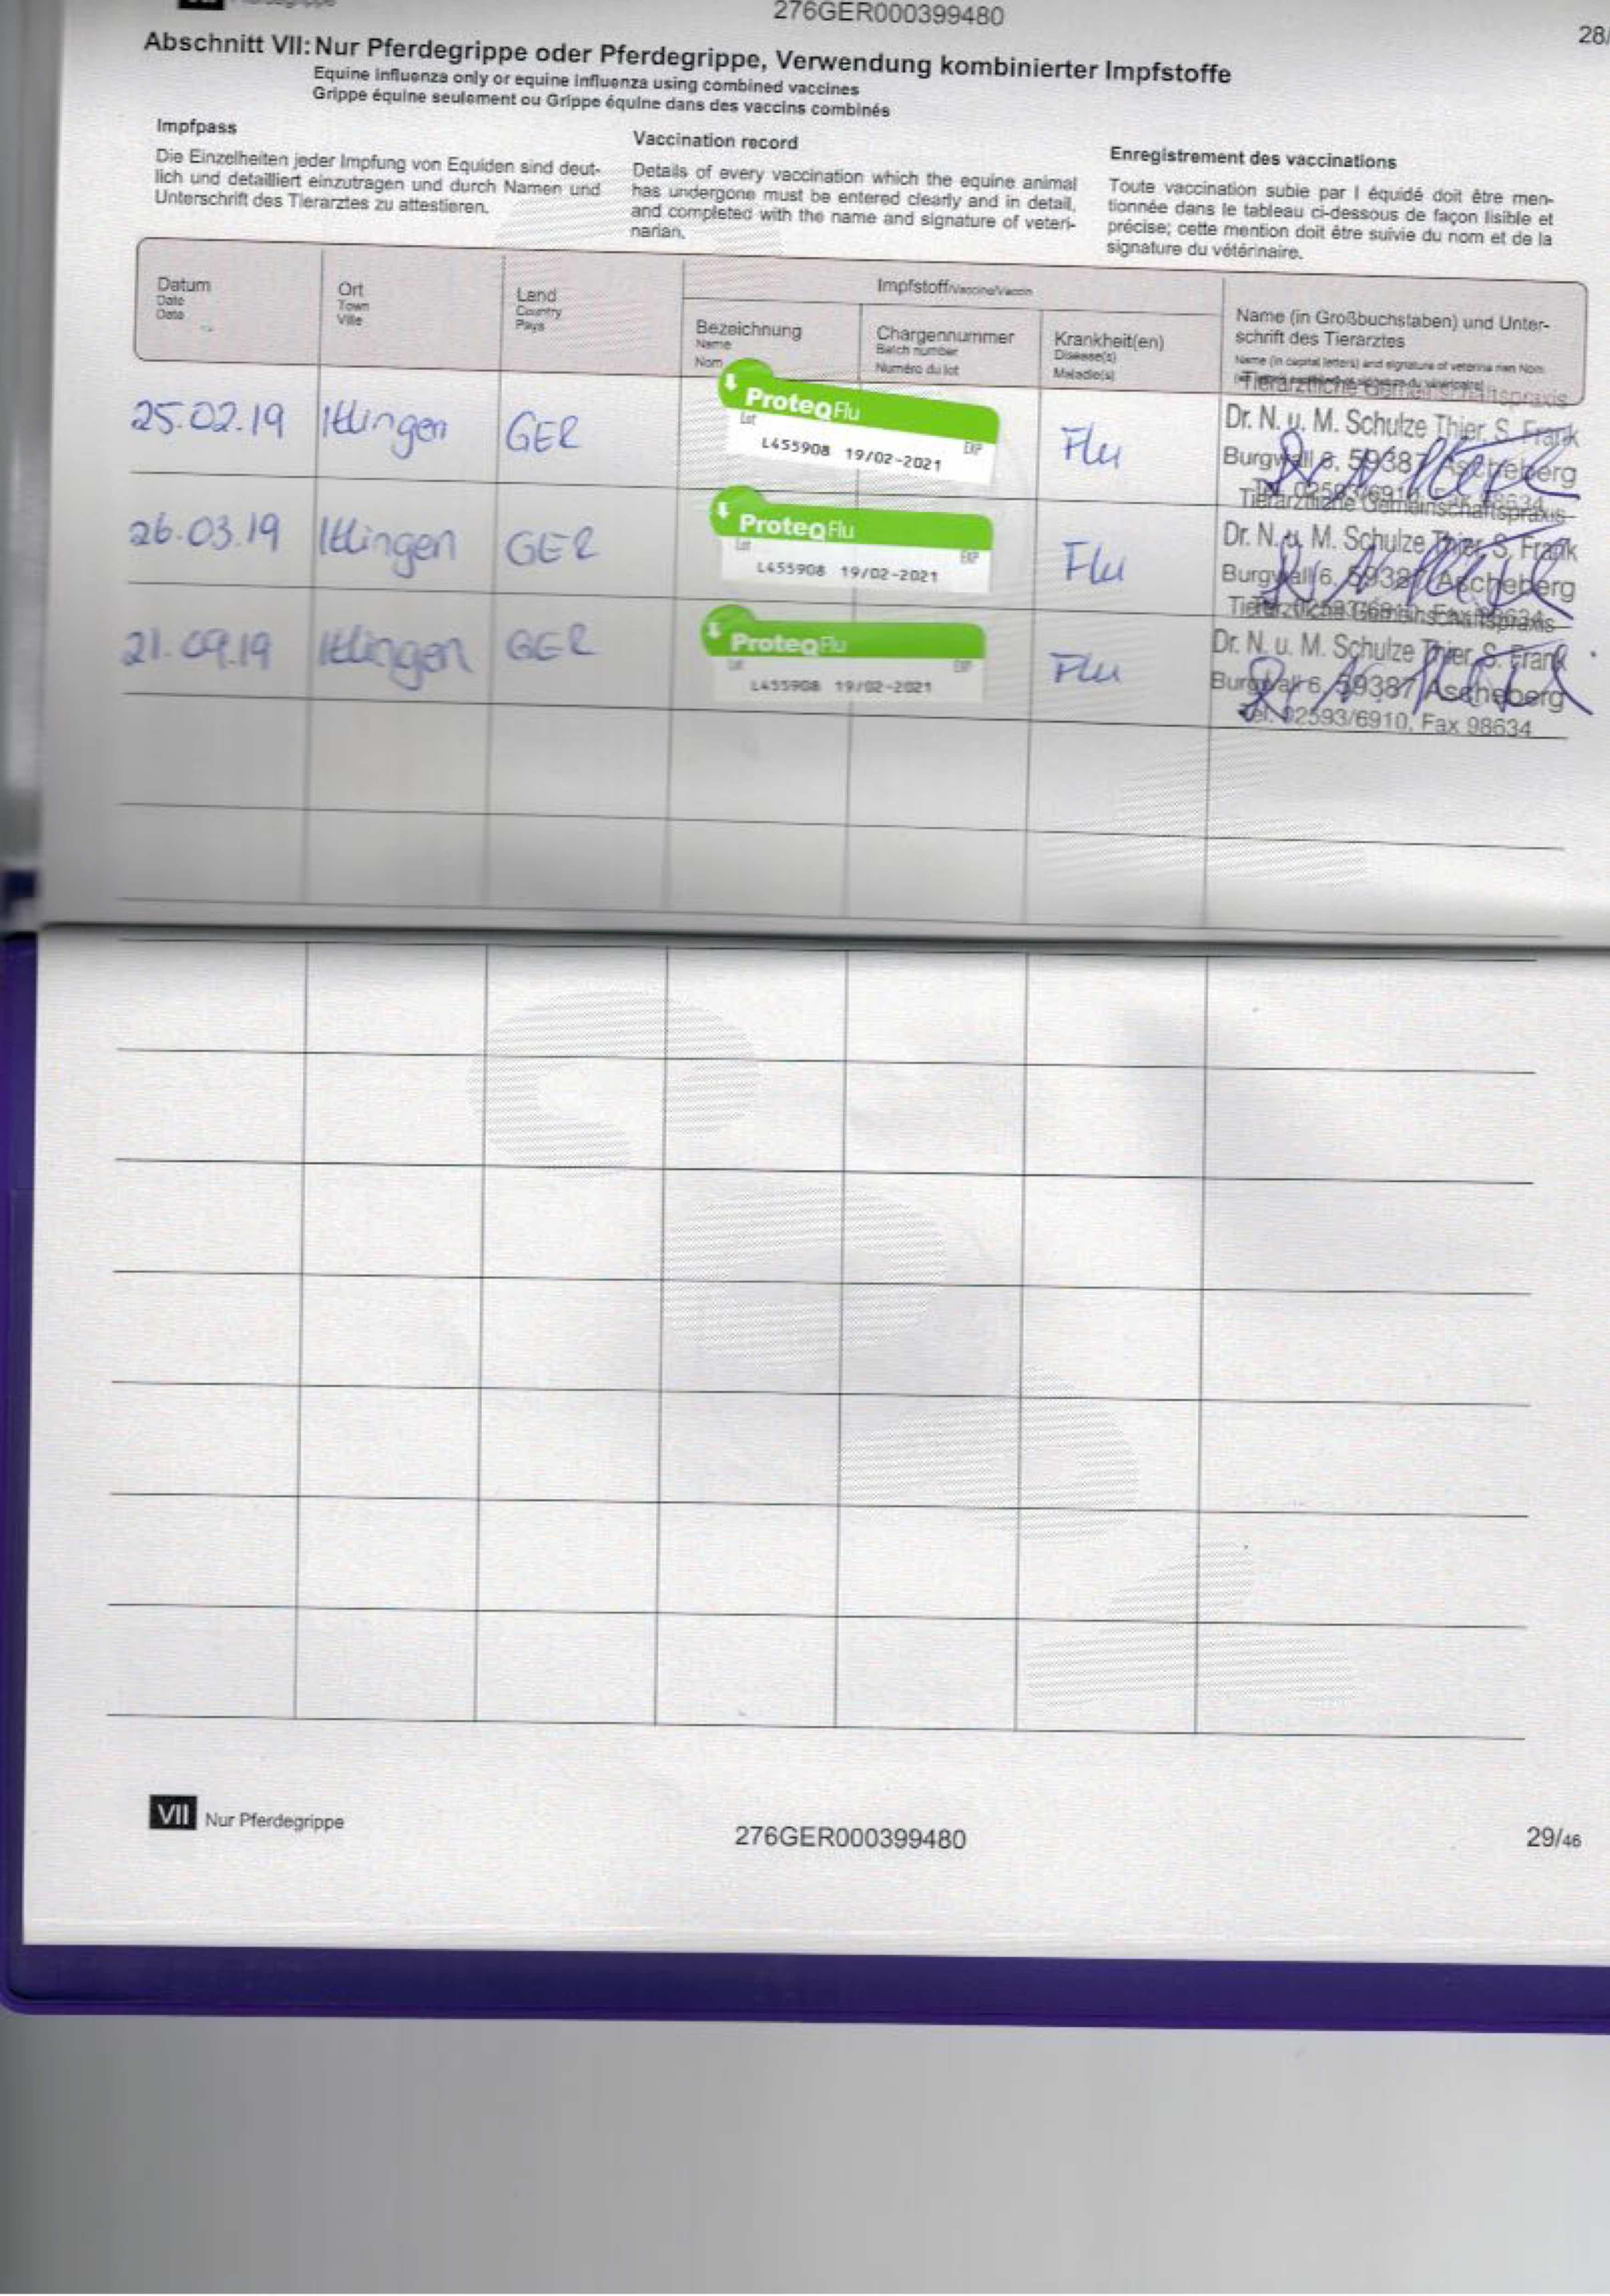 276GER000399480
28/
Abschnitt VII: Nur Pferdegrippe oder Pferdegrippe, Verwendung kombinierter Impfstoffe
Equine influenza only or equine influenza using combined vaccines
Grippe équine seulement ou Grippe équine dans des vaccins combinés
Impfpass
Die Einzelheiten jeder Impfung von Equiden sind deut-
lich und detailliert einzutragen und durch Namen und
Unterschrift des Tierarztes zu attestieren.
Vaccination record
Details of every vaccination which the equine animal
has undergone must be entered clearly and in detail,
and completed with the name and signature of veteri-
narian.
Enregistrement des vaccinations
Toute vaccination subie par l équidé doit être men-
tionnée dans le tableau ci-dessous de façon lisible et
précise; cette mention doit être suivie du nom et de la
signature du vétérinaire.
Datum
Date
Date
Ort
Town
Ville
Land
Country
Pays
Impfstoff/Vaccine/Vaccin
Bezeichnung
Name
Nom
Chargennummer
Batch number
Numéro du lot
Krankheit(en)
Disease(s)
Maladie(s)
Name (in Großbuchstaben) und Unter-
schrift des Tierarztes
Name (in capital letters) and signature of veterina rian Nom
25.02.19 Ittlingen GER
ProteqFlu
Lot EXP
L455908 19/02-2021
Flu
Tierärztliche Gemeinschaftspraxis
Dr. N. u. M. Schulze Thier, S. Frank
Burgwall 6, 59387 Ascheberg
26.03.19 Ittlingen GER
ProteqFlu
Lot EXP
L455908 19/02-2021
Flu
Tierärztliche Gemeinschaftspraxis
Dr. N. u. M. Schulze Thier, S. Frank
Burgwall 6, 59387 Ascheberg
21.09.19 Ittlingen GER
ProteqFlu
Lot EXP
L455908 19/02-2021
Flu
Tierärztliche Gemeinschaftspraxis
Dr. N. u. M. Schulze Thier, S. Frank
Burgwall 6, 59387 Ascheberg
Tel. 02593/6910, Fax 98634
VII Nur Pferdegrippe
276GER000399480
29/46